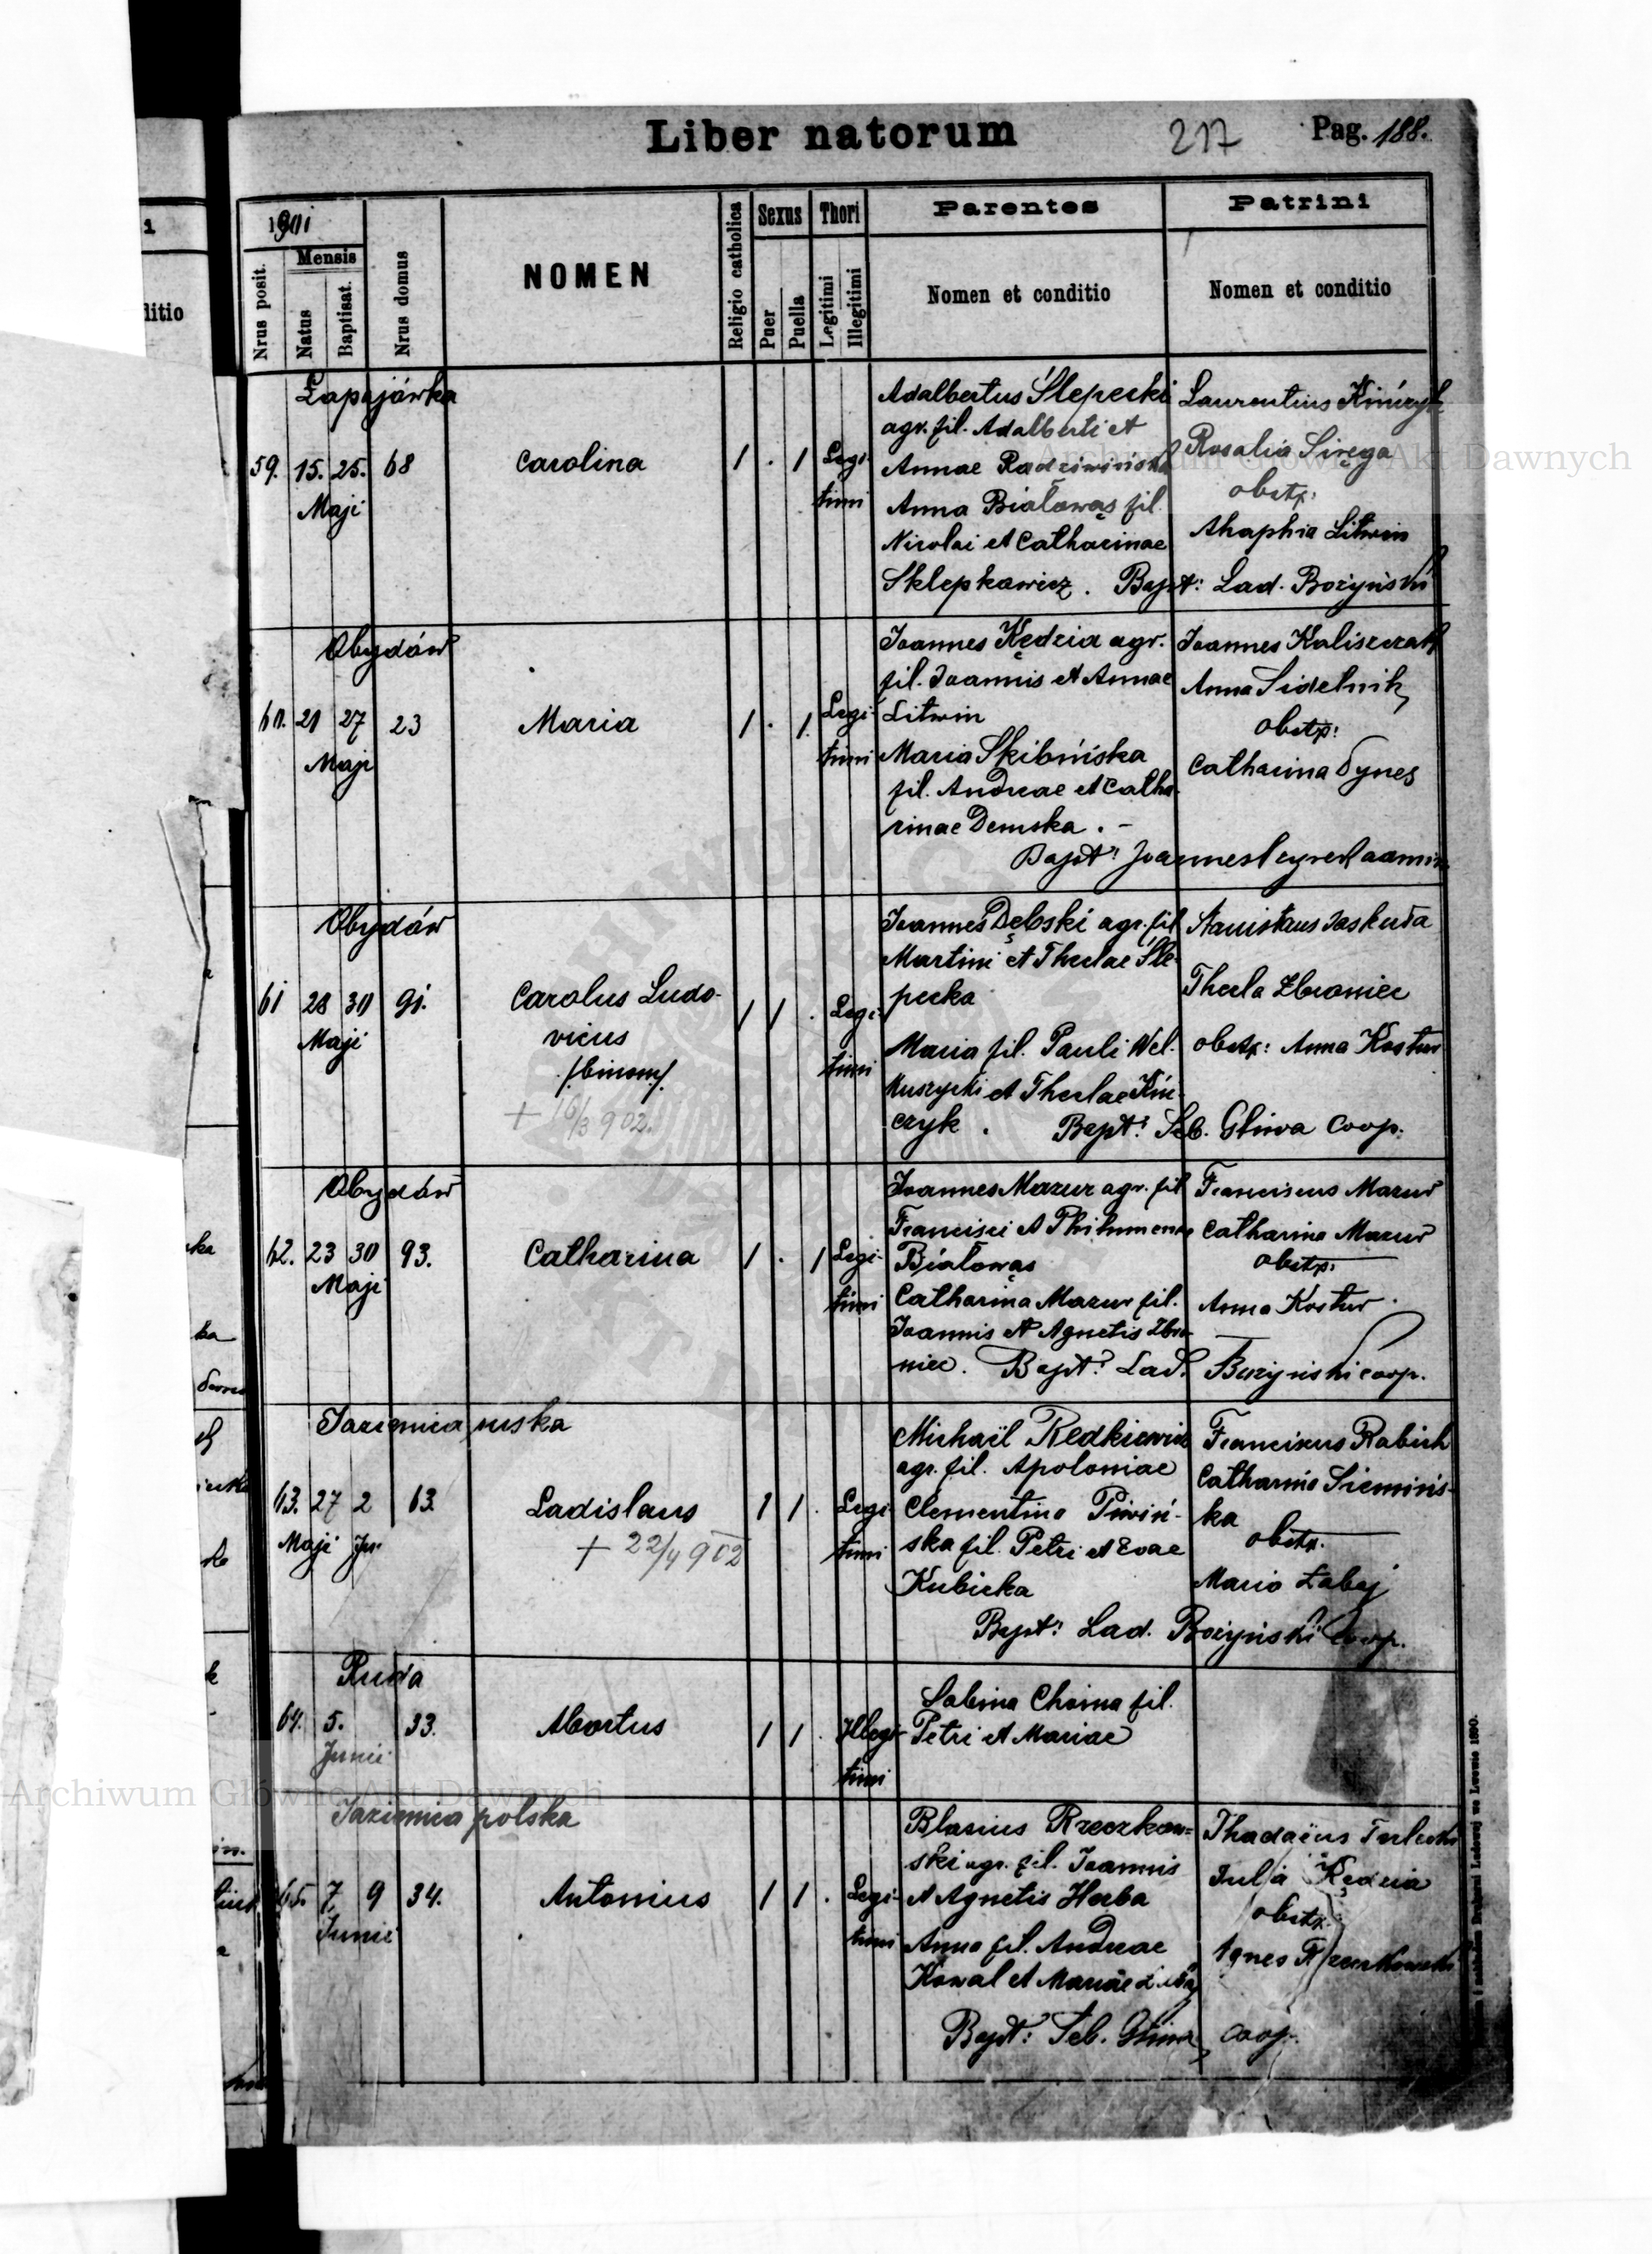 Liber natorum
217
Pag. 188.
1901
Mensis
Nrus posit.
Natus
Baptisat.
Nrus domus
NOMEN
Religio catholica
Sexus
Puer
Puella
Thori
Legitimi
Illegitimi
Parentes
Nomen et conditio
Patrini
Nomen et conditio
Łapajówka
59. 15. 25. 68
Maji
Carolina
1 . 1 Legi-
timi
Adalbertus Ślepecki
agr. fil. Adalberti et
Annae Radziwińska
Anna Białowąs fil.
Nicolai et Catharinae
Sklepkawicz. Bapt: Lad. Bożyński
Laurentius Kińczyk
Rosalia
obstx:
Ahaphia Litwin
Obydów
60. 21 27 23
Maji
Maria
1 . 1. Legi-
timi
Joannes Kędzia agr.
fil. Joannis et Annae
Litwin
Maria Skibińska
fil. Andreae et Catha-
rinae Demska. -
Bapt: Joannes
Joannes Kaliszczak
Anna Sidelnik
obstx:
Catharina
Obydów
61 28 30 91.
Maji
Carolus Ludo-
vicus
/binom/
+ 16/3 902.
1 1 . Legi-
timi
Joannes Dębski agr. fil
Martini et Theclae Śle-
pecka
Maria fil. Pauli Wel-
et Theclae Kiń-
czyk. Bapt: Seb. Gliwa Coop.
Stanislaus Jaskuła
Thecla Zbroniec
obstx: Anna Kostur
Obydów
62. 23 30 93.
Maji
Catharina
1 . 1 Legi-
timi
Joannes Mazur agr. fil
Francisci et Philumenae
Białowąs
Catharina Mazur fil.
Joannis et Agnetis Zbro-
niec. Bapt: Lad. Bożyński coop.
Franciscus Mazur
Catharina Mazur
obstx:
Anna Kostur
Jazienica ruska
63. 27 2 63
Maji Jun
Ladislaus
+ 22/4 902
1 1 . Legi-
timi
Michaël Redkiewicz
agr. fil. Apoloniae
Clementina Piwiń-
ska fil. Petri et Evae
Kubicka
Bapt: Lad. Bożyński Coop.
Franciscus Rabich
Catharina Siemińs-
ka
obstx.
Maria Łabaj
Ruda
64. 5. 33.
Junii
Abortus
1 1 . Illegi-
timi
Sabina Choina fil.
Petri et Mariae
Jazienica polska
65. 7 9 34.
Junii
Antonius
1 1 . Legi-
timi
Blasius Rzeczkow=
ski agr. fil. Joannis
et Agnetis Herba
Anna fil. Andreae
Kowal et Mariae
Bapt: Seb. Gliwa, coop.
Thadaëus
Julia Kędzia
obstx.
Agnes Rzeczkowski
Archiwum Główne Akt Dawnych
Archiwum Główne Akt Dawnych